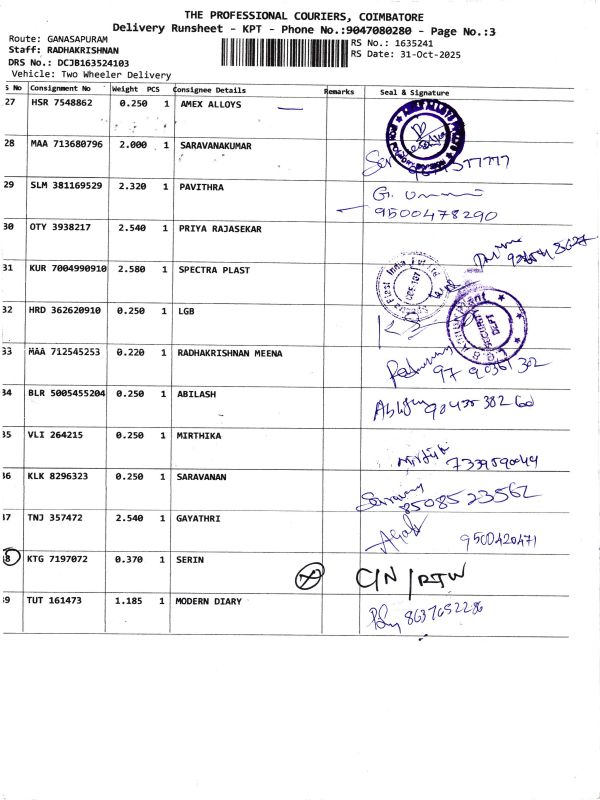 THE PROFESSIONAL COURIERS, COIMBATORE
Delivery Runsheet - KPT - Phone No.:9047080280 - Page No.:3
Route: GANASAPURAM
RS No.: 1635241
Staff: RADHAKRISHNAN
RS Date: 31-Oct-2025
DRS No.: DCJB163524103
Vehicle: Two Wheeler Delivery
S No Consignment No Weight PCS Consignee Details Remarks Seal & Signature
27 HSR 7548862 0.250 1 AMEX ALLOYS
28 MAA 713680796 2.000 1 SARAVANAKUMAR
29 SLM 381169529 2.320 1 PAVITHRA
9500478290
30 OTY 3938217 2.540 1 PRIYA RAJASEKAR
31 KUR 7004990910 2.580 1 SPECTRA PLAST
32 HRD 362620910 0.250 1 LGB
SECURITY DEPT
33 MAA 712545253 0.220 1 RADHAKRISHNAN MEENA
34 BLR 5005455204 0.250 1 ABILASH
35 VLI 264215 0.250 1 MIRTHIKA
36 KLK 8296323 0.250 1 SARAVANAN
8508523562
37 TNJ 357472 2.540 1 GAYATHRI
9500420471
38 KTG 7197072 0.370 1 SERIN
C/N / RTW
39 TUT 161473 1.185 1 MODERN DIARY
8637652286